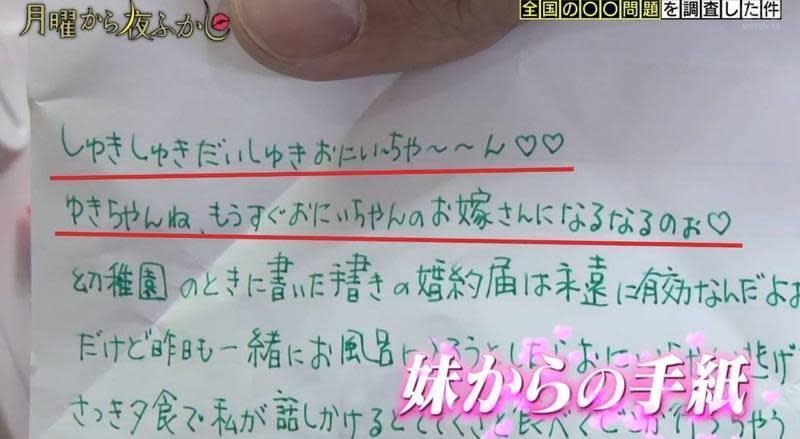 月曜から夜ふかし
全国の〇〇問題を調査した件
しゅきしゅきだいしゅきおにい〜ちゃ〜〜ん♡♡
ゆきちゃんね、もうすぐおにいちゃんのお嫁さんになるなるのぉ♡
幼稚園のときに書いた手書きの婚約届は永遠に有効なんだよぉ
だけど昨日も一緒にお風呂に
逃げ
さっき夕食で私が話しかけると
妹からの手紙